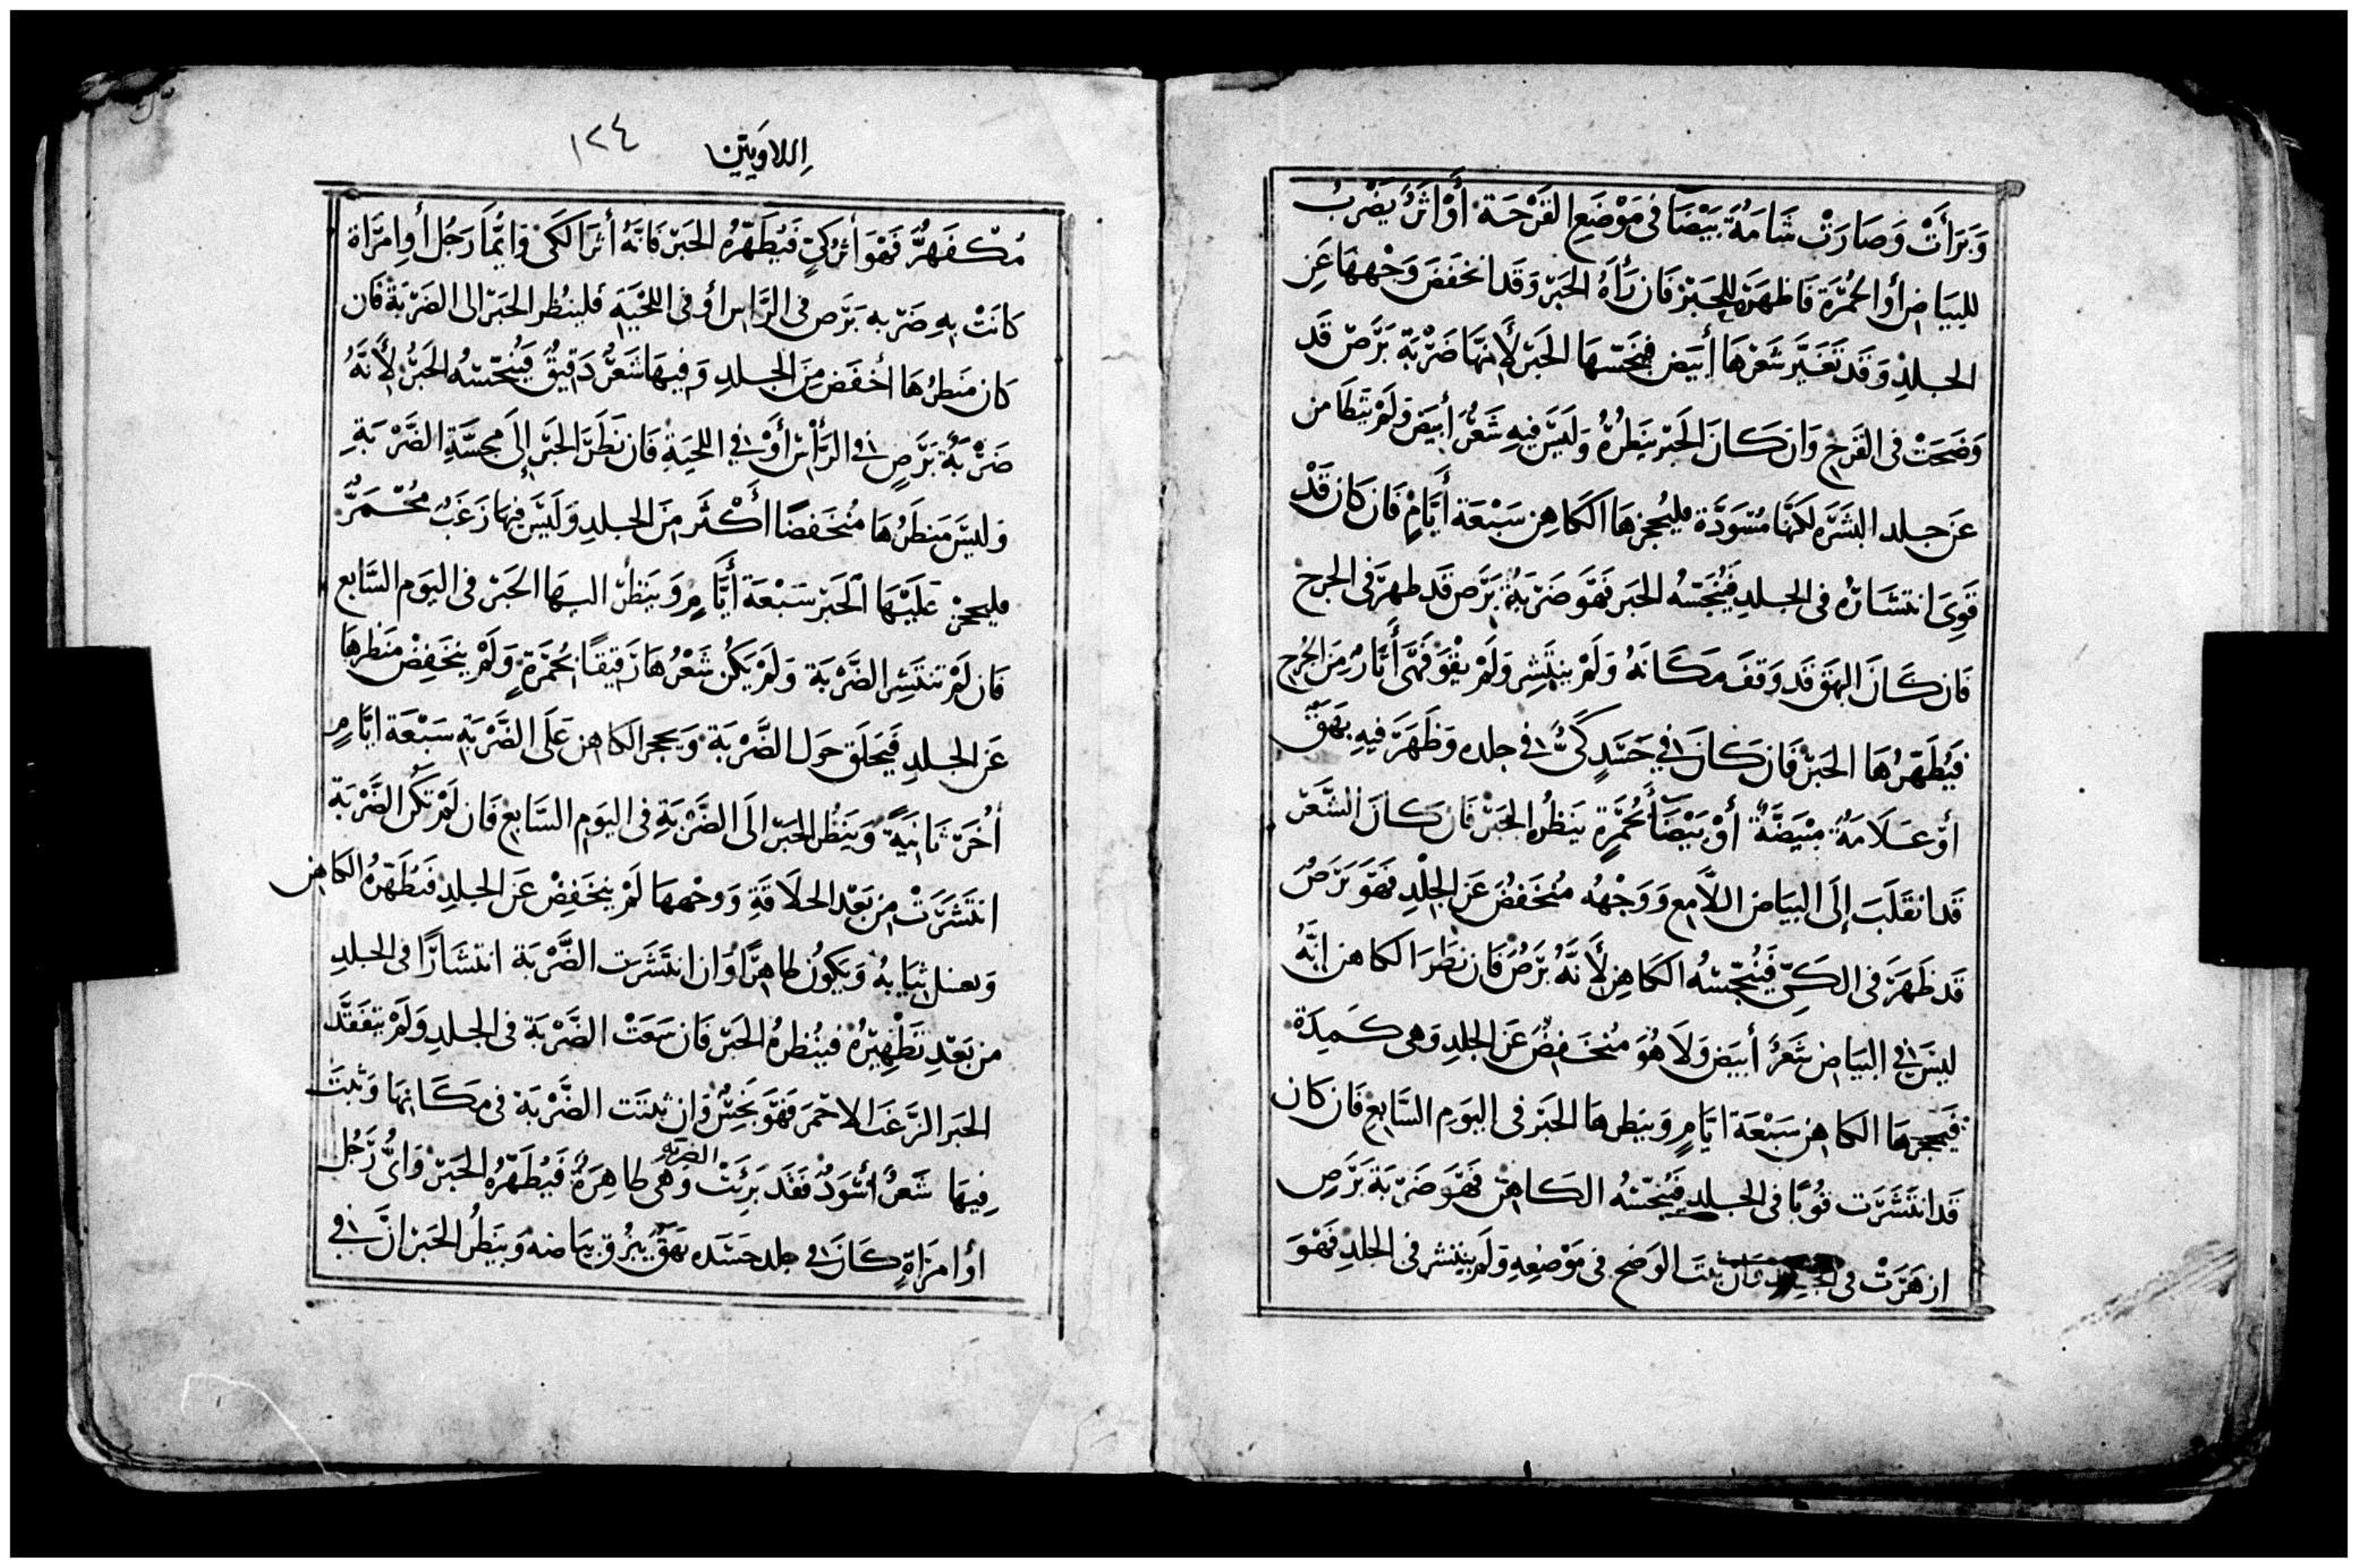 وَبَرَأَتْ وَصَارَتْ شَامَةً بَيْضَا فى مَوْضَعِ القَرْحَة أَوْ اثَرٌ يَضْرِبُ
للبَيَاضِ أو الحُمْرَة فَاظهَرَهَ للحَبْرْ فَان رَأَهُ الحَبْر وَقَد انخفَضَ وَجْههَا عَن
الجلدْ وَقَد تَغَيَّر شَعْرهَا أبيَض فيُنَجّسهَا الحَبْر لأنهَا ضَرْبَة بَرَص قَد
وَضَحَتْ فى القَرحِ وَان كَانَ الحَبْر يَنظرُهُ وَلَيسَ فيهِ شَعْرٌ أبيَض وَلَمْ يَتَطَامن
عَن جلد البَشَرَه لكنّهَا مُسْوَدَّة فليُحجزهَا الكَاهِن سَبْعَة أيَّامٍ فَان كَان قَدْ
قَوِىَ انتشَارُه فى الجلدِ فَيُنَجّسْهُ الحَبر فَهوَ ضَرْبَةُ بَرَص قَد ظهرَ فى الجرح
فَان كَانَ البهَق قَد وَقفَ مَكَانَهُ وَلَمْ ينتَشِر وَلَمْ يقْوَ فَهىَ أَثَارٌ مِن الجُرح
فيُطَهّرُهَا الحَبْر فَان كَانَ فِي جَسَدٍ كَىٌّ فِي جلده وَظَهَرَ فيهِ بهَقٌ
أوْ عَلَامَةٌ مُبْيَضَّةٌ أوْ بَيْضَآ بحُمْرَةٍ يَنظُره الحَبْرْ فَان كَانَ الشَّعْر
قَد انقَلَبَ إلَى البيَاض اللَّامِع وَوَجْهُه مُنخَفِضٌ عَن الجِلْدِ فَهوَ بَرَصٌ
قَد ظَهَرَ فى الكَىّ فَيُنَجّسْهُ الكَاهِن لأَنَّهُ بَرَصٌ فَان نظَرَ الكاهن انَّهُ
ليسَ فِي البيَاض شَعْرٌ أبيَض وَلَا هُوَ مُنخَفِضٌ عَن الجلدِ وَهى كَمِدَة
فَيحجزهَا الكَاهِن سَبْعَة ايَّامٍ وَينظرهَا الحَبْر فى اليَومِ السَّابِعِ فَان كَان
قَد انتَشَرَت قَويًا فى الجلدِ فَيُنَجّسْهُ الكَاهِن فَهوَ ضَرْبَة بَرَصِ
ازهَرَتْ فى الجلد وَان ثبتَ الوَضح فى مَوْضِعِهِ وَلَم ينتشر فى الجلدِ فَهْوَ
اِللاوَيِتين ١٢٤
مُكْفَهِرٌّ فَهْوَ أثَرُ كَىٍّ فَيُطَهّرُهُ الحَبْر فَانَّهُ أثرَ الكَىّ وَايُّمَا رَجُل أو امرَاة
كَانَتْ بِهِ ضَرْبه بَرَص فى الرَّاس أو فى اللحْيَة فلينُظر الحَبْر الى الضَرْبَة فَان
كَان مَنظرُهَا أخفَض مِنَ الجلدِ وَفيهَا شَعْرٌ دَقيقٌ فَيُنَجّسْهُ الحَبْرُ لأَنَّهُ
ضَرْبَةُ بَرَصٍ فِي الرَّأسْ أوْ فِي اللحيَةِ فَان نَظَرَ الحَبْر إلَى مجسَّةِ الضَرْبَةِ
وَليسَ مَنظَرُهَا مُنخَفضًا أكْثَر مِنَ الجلدِ وَلَيسَ فيهَا زَغَبٌ مُحْمَرٌّ
فليحجز عَلَيْهَا الحَبْر سَبْعَة أيَّامٍ وَيَنظُر اليهَا الحَبْر فى اليَوم السَّابع
فَان لَمْ تنتَشِر الضَرْبَة وَلَمْ يَكُن شَعْرُهَا رَقيقًا بحُمْرَةٍ وَلَمْ ينخَفِضْ مَنظرهَا
عَن الجلدِ فَيَحلَق حَول الضَّرْبَة وَيحجر الكَاهِن عَلَى الضَرْبَةِ سَبْعَة ايَّامٍ
أُخَر ثَانِيَةً وَيَنظُر الحَبْر الَى الضَرْبَةِ فى اليَوم السَّابِع فَان لَمْ تَكُن الضَّرْبَة
انتَشَرَتْ مِن بَعْد الحلَاقَةِ وَوجْههَا لَمْ ينخَفِضْ عَن الجلدِ فَيُطَهّرهُ الكَاهِن
وَيغسل ثيَابهُ وَيَكُونُ طَاهِرًا وَان انتَشَرَت الضَّرْبَة انتشَارًا فى الجلدِ
من بَعْدِ تَطْهِيرُهُ فينُظرهُ الحَبْر فَان سَعَتْ الضَّرْبَة فى الجلدِ وَلَمْ يَتفَقَّد
الحَبر الزَّغَبَ الاحْمَر فَهوَ نَجِسٌ وَان ثبتَت الضَّرْبَة فى مَكَانِهَا وَثبتَ
فِيهَا شَعْرٌ أسْوَدٌ فَقَد بَرِئَتْ الضربة وَهْىَ طَاهِرَةٌ فَيُطَهّرُهُ الحَبْر وَاىُّ رَجُل
أو امرَاةٍ كَانَ فِي جلد جَسَده بَهَقٌ يبرُق بيَاضهُ وَيَنظُر الحَبْر انَّ فِي